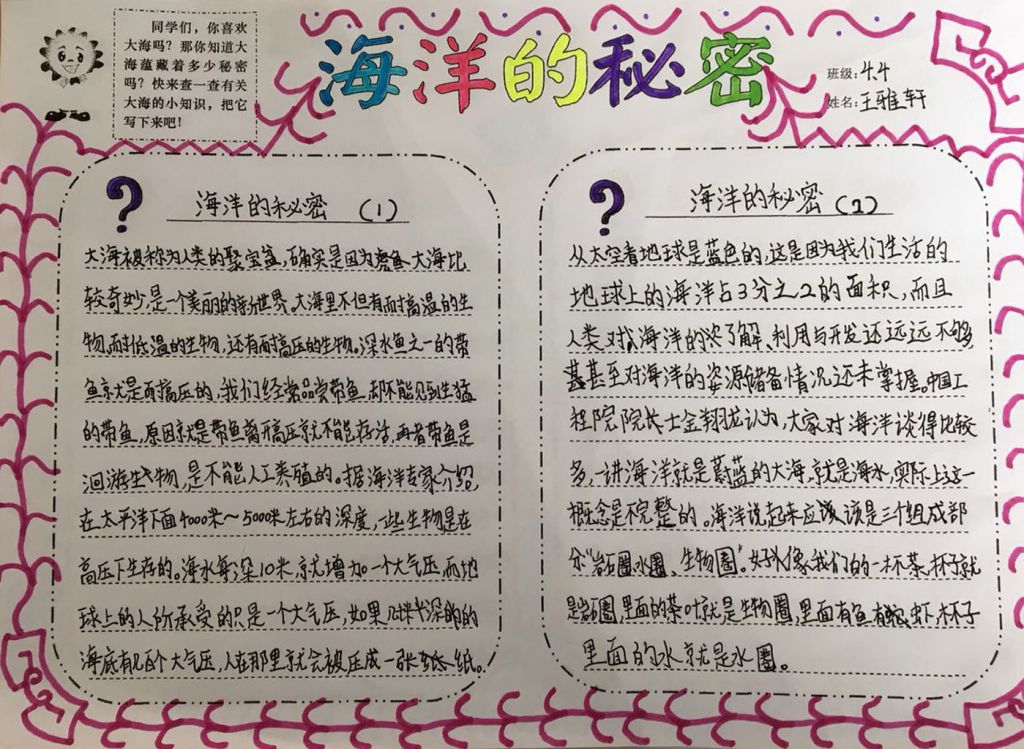 同学们，你喜欢
大海吗？那你知道大
海蕴藏着多少秘密
吗？快来查一查有关
大海的小知识，把它
写下来吧！
海洋的秘密
班级：4.4
姓名：王雅轩
海洋的秘密（1）
大海被称为人类的聚宝盆，确实是因为 大海比
较奇妙，是一个美丽的新世界。大海里不但有耐高温的生
物，耐低温的生物，还有耐高压的生物。深水鱼之一的带
鱼就是耐高压的，我们经常品尝带鱼，却不能见到生猛
的带鱼，原因就是带鱼离开高压就不能存活，再者带鱼是
洄游生物，是不能人工养殖的。据海洋专家介绍，
在太平洋下面4000米～5000米左右的深度，一些生物是在
高压下生存的。海水每深10米，就增加一个大气压，而地
球上的人所承受的只是一个大气压，如果 深的
海底有几百个大气压，人在那里就会被压成一张纸。
海洋的秘密（2）
从太空看地球是蓝色的，这是因为我们生活的
地球上的海洋占3分之2的面积，而且
人类对海洋的 了解、利用与开发还远远不够，
甚至对海洋的资源储备情况还未掌握。中国工
程院院长士金翔龙认为，大家对海洋谈得比较
多，一讲海洋就是蔚蓝的大海，就是海水，实际上这一
概念是不完整的。海洋说起来应该是三个组成部
分“岩石圈水圈、生物圈”。好像我们的一杯茶，杯子就
是岩石圈，里面的茶叶就是生物圈，里面有鱼有 虾，杯子
里面的水就是水圈。